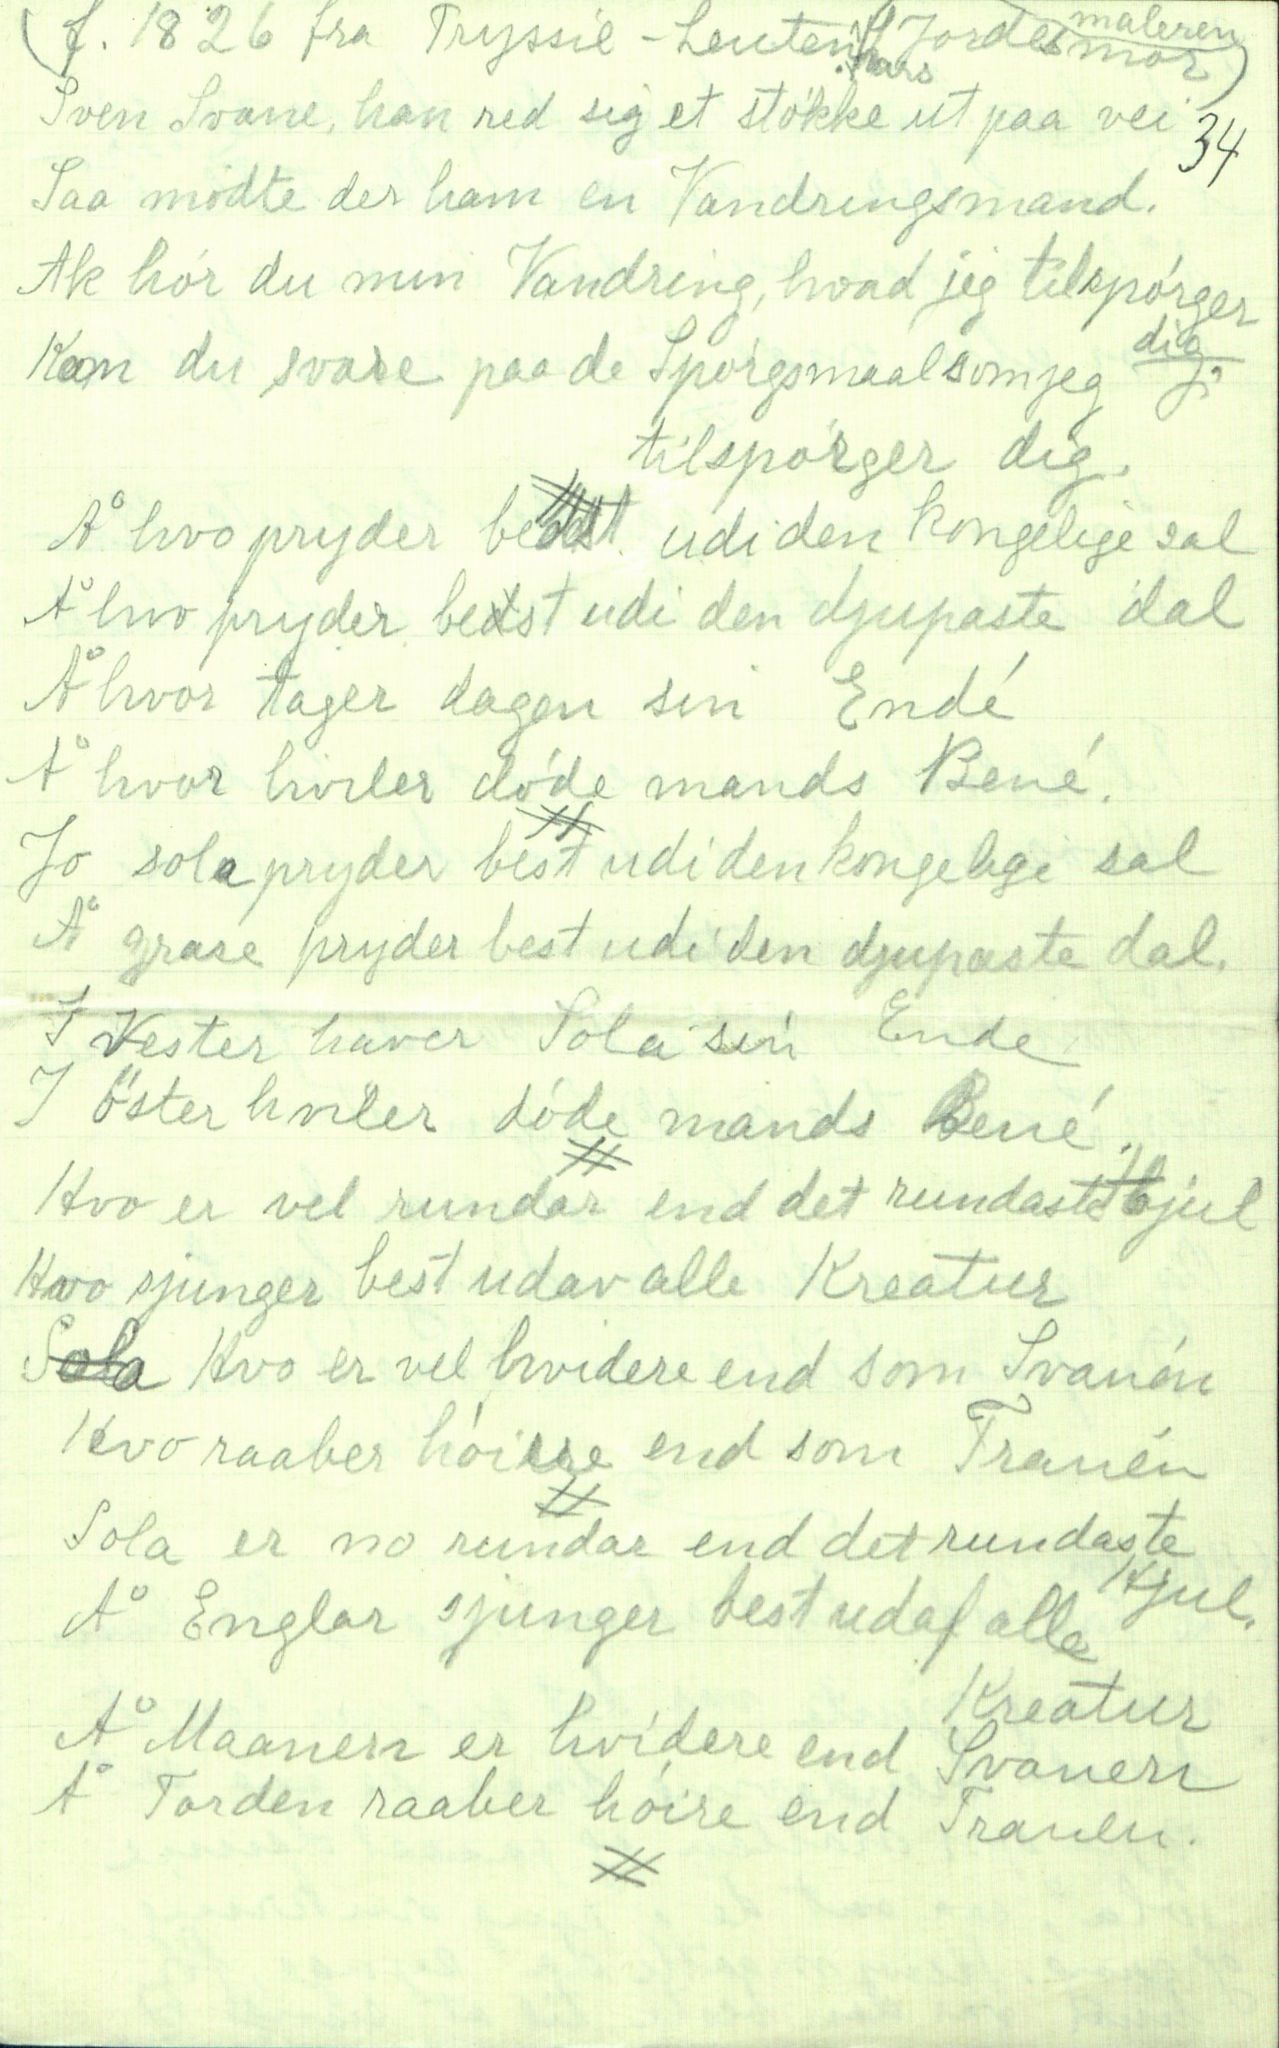 (f. 1826 fra Tryssil - Leuten. Jordes mor) maleren
hans
Sven Svane, han red sig et støkke ut paa vei
34
Saa mødte der ham en Vandringsmand.
Ak hør du min Vandring, hvad jeg tilspørger dig
Kan du svare paa de Spørgsmaal som jeg
tilspørger dig.
Å hvo pryder bedst udi den kongelige sal
Å hvo pryder bedst udi den djupaste dal
Å hvor tager dagen sin Endé
Å hvor hviler døde mands Bené.
Jo sola pryder best udi den kongelige sal
Å grase pryder best udi den djupaste dal.
I Vester haver Sola sin Ende
I öster hviler døde mands Bené.
Hvo er vel rundar end det rundaste Hjul
Hvo sjunger best udav alle Kreatur
Sola Hvo er vel hvidere end som Svanén
Hvo raaber høiere end som Tranén
Sola er no rundar end det rundaste
Hjul.
Å Englar sjunger best udaf alle
Kreatur
Å Maanen er hvidere end Svanen
Å Torden raaber høire end Tranen.